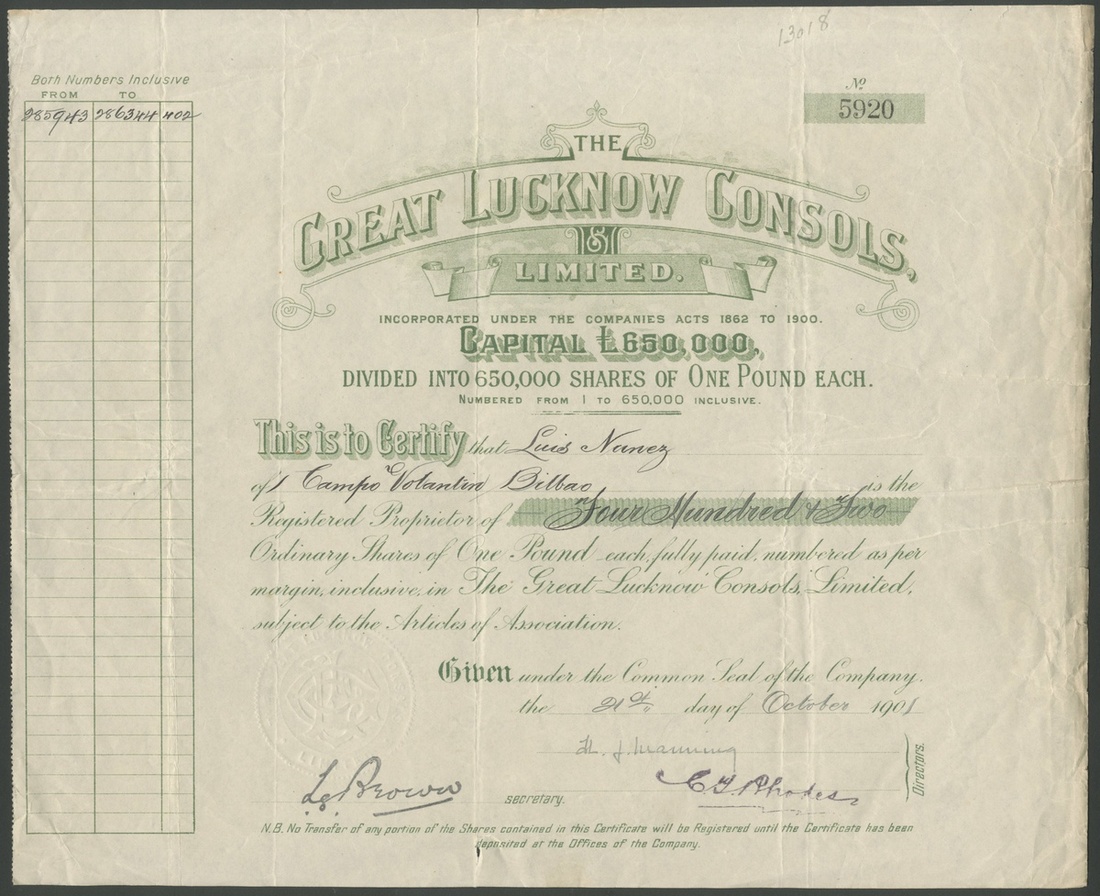 13018
Both Numbers Inclusive
FROM TO
285943 286344 402
No
5920
THE
GREAT LUCKNOW CONSOLS,
LIMITED.
INCORPORATED UNDER THE COMPANIES ACTS 1862 TO 1900.
CAPITAL £650,000,
DIVIDED INTO 650,000 SHARES OF ONE POUND EACH.
NUMBERED FROM 1 TO 650,000 INCLUSIVE.
This is to Certify that Luis Nunez
of 1 Campo Volantin Bilbao is the
Registered Proprietor of Four Hundred & Two
Ordinary Shares of One Pound each, fully paid, numbered as per
margin, inclusive, in The Great Lucknow Consols, Limited,
subject to the Articles of Association.
Given under the Common Seal of the Company.
the 21st day of October 1901
H. J. Manning
Directors.
Brown secretary. Rhodes
N.B. No Transfer of any portion of the Shares contained in this Certificate will be Registered until the Certificate has been
deposited at the Offices of the Company.